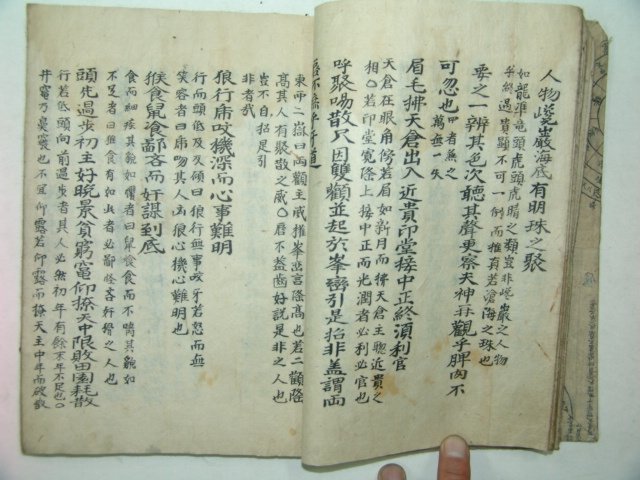 人物巉巖海底有明珠之聚
如龍準竜頭虎頭虎睛之類豈非巉巖之人物
乎然遇貴顯不可一例而推有若滄海之珠也
要之一辨其色次聽其聲更察天神弄觀乎脾肉不
可忽也 四者無之
萬無一失
眉毛拂天倉出入近貴印堂接中正終須利官
天倉在眼角傍若眉如新月而拂天倉主聰近貴之
相○若印堂寬隆上接中正而光潤者必利必官也
呼聚喝散只因雙顴並起於峯巒引是招非盖謂両
東西二嶽曰両顴主威推峯出言隆高也若二顴隆
高其人有聚散之威○唇不盖齒好說是非之人也
豈不自招足引
非者哉
狼行席吻機深而心事難明
行而頭低及反傾曰狼行無事咬牙若怒而無
笑容者曰席吻其人凶狠心機心難明也
猴食鼠飡鄙吝而奸謀到底
食而細疾其貌如猴者曰鼠飡食而不嚼其貌如
不足者曰猴食有如此者鄙吝奸猾之人也
頭先過步初主好晩景貧窮竈仰撩天中限敗田園耗散
行若低頭向前過步者其人必然初年有餘末年不足也○
井竈乃鼻竅也不宜仰露若仰露而撩天主中年而破散